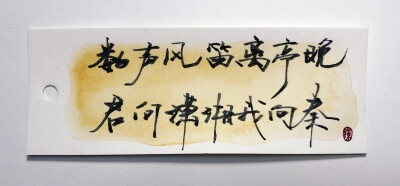 数声风笛离亭晚
君向潇湘我向秦